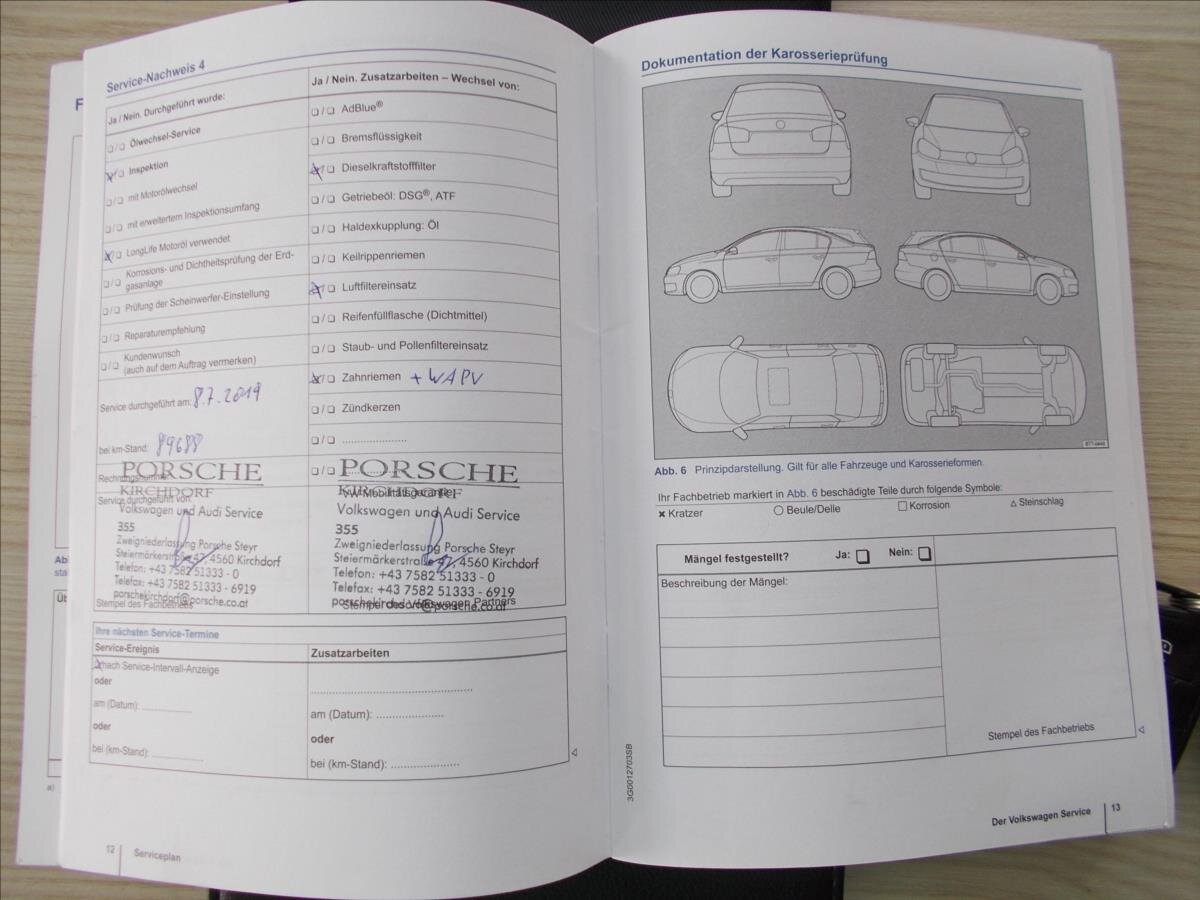 F
Service-Nachweis 4
Ja / Nein. Durchgeführt wurde:
❑/❑ Ölwechsel-Service
❑/❑ Inspektion
❑/❑ mit Motorölwechsel
❑/❑ mit erweitertem Inspektionsumfang
❑/❑ LongLife Motoröl verwendet
❑/❑ Korrosions- und Dichtheitsprüfung der Erd-
gasanlage
❑/❑ Prüfung der Scheinwerfer-Einstellung
❑/❑ Reparaturempfehlung
❑/❑ Kundenwunsch
(auch auf dem Auftrag vermerken)
Service durchgeführt am: 8.7.2019
bei km-Stand: 89688
Rechnungsnummer
PORSCHE
KIRCHDORF
Service durchgeführt von:
Volkswagen und Audi Service
355
Zweigniederlassung Porsche Steyr
Steiermärkerstraße 47, 4560 Kirchdorf
Telefon: +43 7582 51333 - 0
Telefax: +43 7582 51333 - 6919
porschekirchdorf@porsche.co.at
Stempel des Fachbetriebs
Ja / Nein. Zusatzarbeiten – Wechsel von:
❑/❑ AdBlue®
❑/❑ Bremsflüssigkeit
❑/❑ Dieselkraftstofffilter
❑/❑ Getriebeöl: DSG®, ATF
❑/❑ Haldexkupplung: Öl
❑/❑ Keilrippenriemen
❑/❑ Luftfiltereinsatz
❑/❑ Reifenfüllflasche (Dichtmittel)
❑/❑ Staub- und Pollenfiltereinsatz
❑/❑ Zahnriemen + WAPV
❑/❑ Zündkerzen
❑/❑ .....................
❑/❑ PORSCHE
KIRCHDORF
VW-Mobilitätsgarantie
Volkswagen und Audi Service
355
Zweigniederlassung Porsche Steyr
Steiermärkerstraße 47, 4560 Kirchdorf
Telefon: +43 7582 51333 - 0
Telefax: +43 7582 51333 - 6919
porschekirchdorf@porsche.co.at
Stempel des Volkswagen Partners
Ihre nächsten Service-Termine
Service-Ereignis
nach Service-Intervall-Anzeige
oder
am (Datum): ..................
oder
bei (km-Stand): ..................
Zusatzarbeiten
.....................................................
am (Datum): ......................
oder
bei (km-Stand): ......................
12 Serviceplan
Ab
sta
Üb
a)
Dokumentation der Karosserieprüfung
Abb. 6 Prinzipdarstellung. Gilt für alle Fahrzeuge und Karosserieformen.
Ihr Fachbetrieb markiert in Abb. 6 beschädigte Teile durch folgende Symbole:
✖ Kratzer ○ Beule/Delle □ Korrosion △ Steinschlag
Mängel festgestellt? Ja: ❑ Nein: ❑
Beschreibung der Mängel:
Stempel des Fachbetriebs
3G0012703SB
Der Volkswagen Service 13